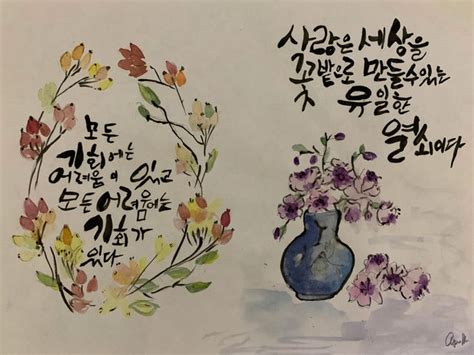 모든
기회에는
어려움이 있고
모든 어려움에는
기회가
있다
사랑은 세상을
꽃밭으로 만들수있는
유일한
열쇠이다